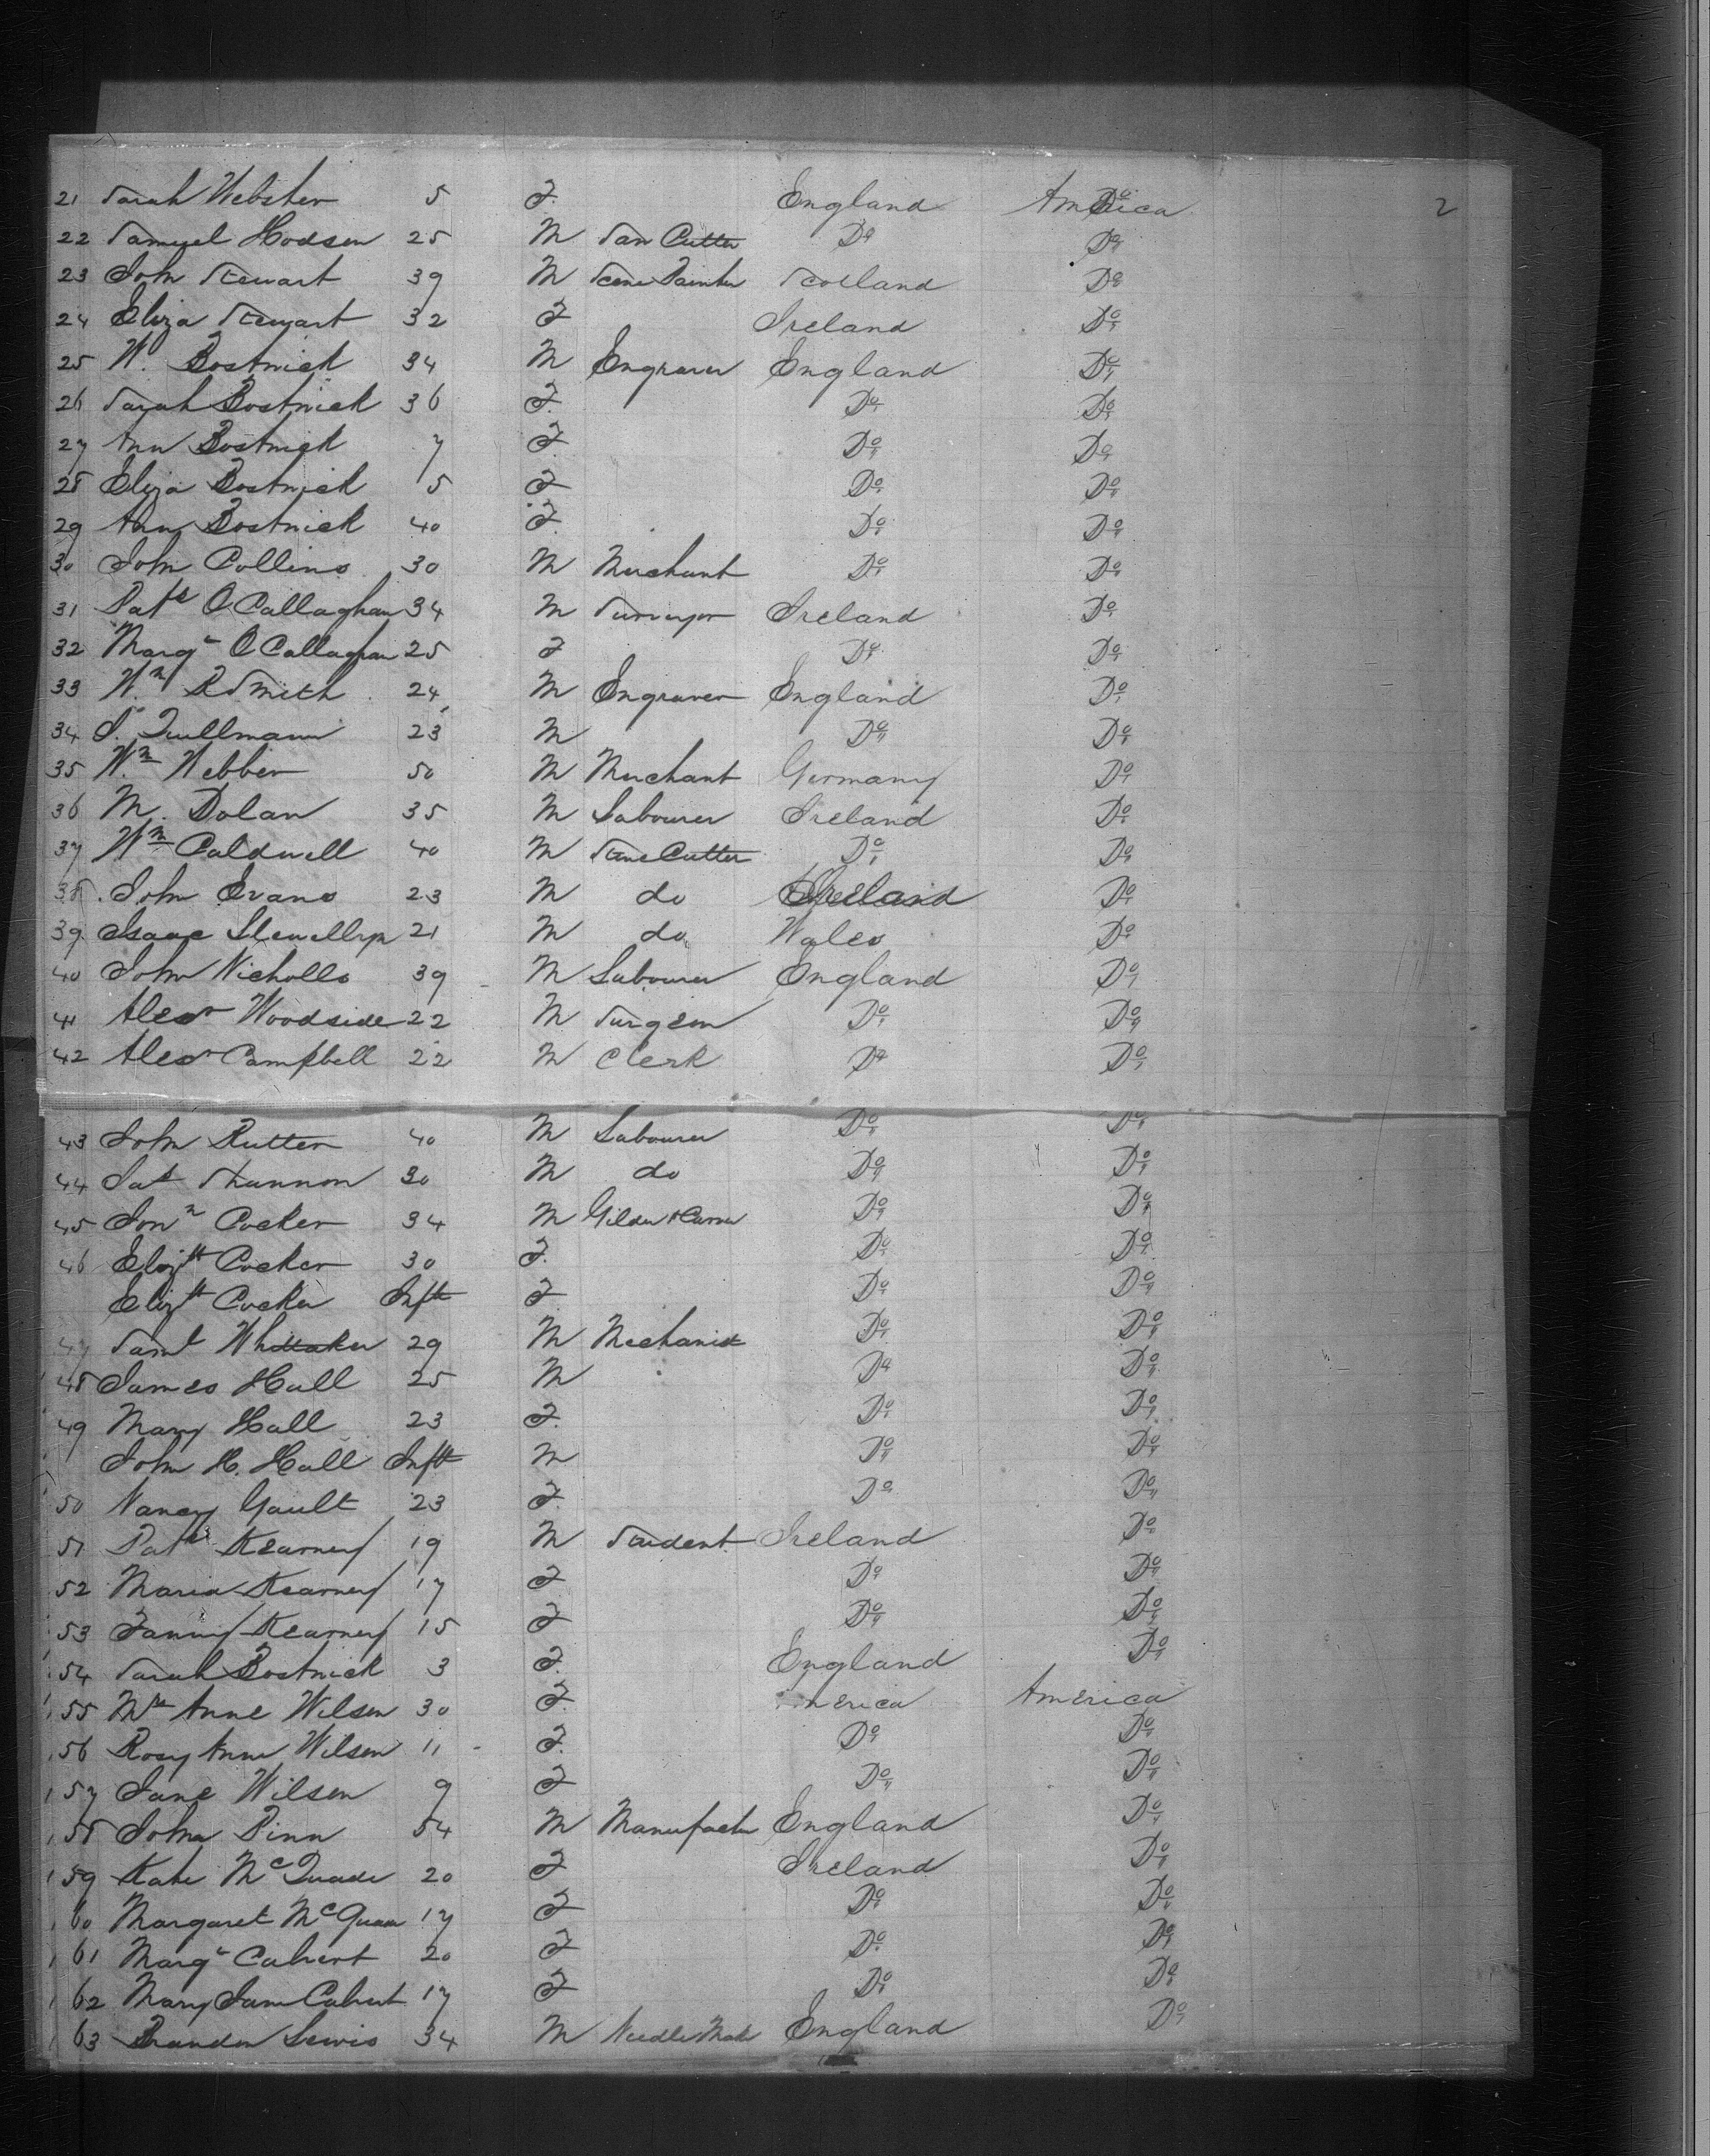 21 Sarah Webster 5 F. England America 2
22 Samuel Hodson 25 M Cutter Do Do
23 John Stewart 39 M Scene Painter Scotland Do
24 Eliza Stewart 32 F Ireland Do
25 W. Bostwick 34 M Engraver England Do
26 Sarah Bostwick 36 F. Do Do
27 Ann Bostwick 7 F. Do Do
28 Eliza Bostwick 5 F Do Do
29 Ann Bostwick 40 F. Do Do
30 John Collins 30 M Merchant Do Do
31 Patk O Callaghan 34 M Surveyor Ireland Do
32 Margt O Callaghan 25 F Do Do
33 Wm R Smith 24 M Engraver England Do
34 23 M Do Do
35 Wm Webber 50 M Merchant Germany Do
36 M. Dolan 35 M Labourer Ireland Do
37 Wm Caldwell 40 M Stone Cutter Do Do
38 John Evans 23 M do Do
39 Isaac Llewellyn 21 M do Wales Do
40 John Nicholls 39 M Labourer England Do
41 Alexr Woodside 22 M Surgeon Do Do
42 Alexr Campbell 22 M Clerk Do Do
43 John Rutter 40 M Labourer Do Do
44 Shannon 30 M do Do Do
45 Jonn Cocker 34 M Gilder & Carver Do Do
46 Elizth Cocker 30 F. Do Do
Elizth Cocker Inft F Do Do
47 Saml Whittaker 29 M Mechanic Do Do
48 James Hall 25 M Do Do
49 Mary Hall 23 F. Do Do
John H. Hall Inft M Do Do
50 Nancy Gault 23 F. Do Do
51 Patk Kearney 19 M Student Ireland Do
52 Maria Kearney 17 F Do Do
53 Fanny Kearney 15 F Do Do
54 Sarah Bostwick 3 F. England Do
55 Mrs Anne Wilson 30 F. America America
56 Rosy Anne Wilson 11 F. Do Do
57 Jane Wilson 9 F Do Do
58 John Pinn 54 M Manufactr England Do
59 Kate McQuade 20 F Ireland Do
60 Margaret 17 F Do Do
61 Margt Calvert 20 F Do Do
62 Mary Jane Calvert 17 F Do Do
63 Brandon Lewis 34 M Needle Maker England Do